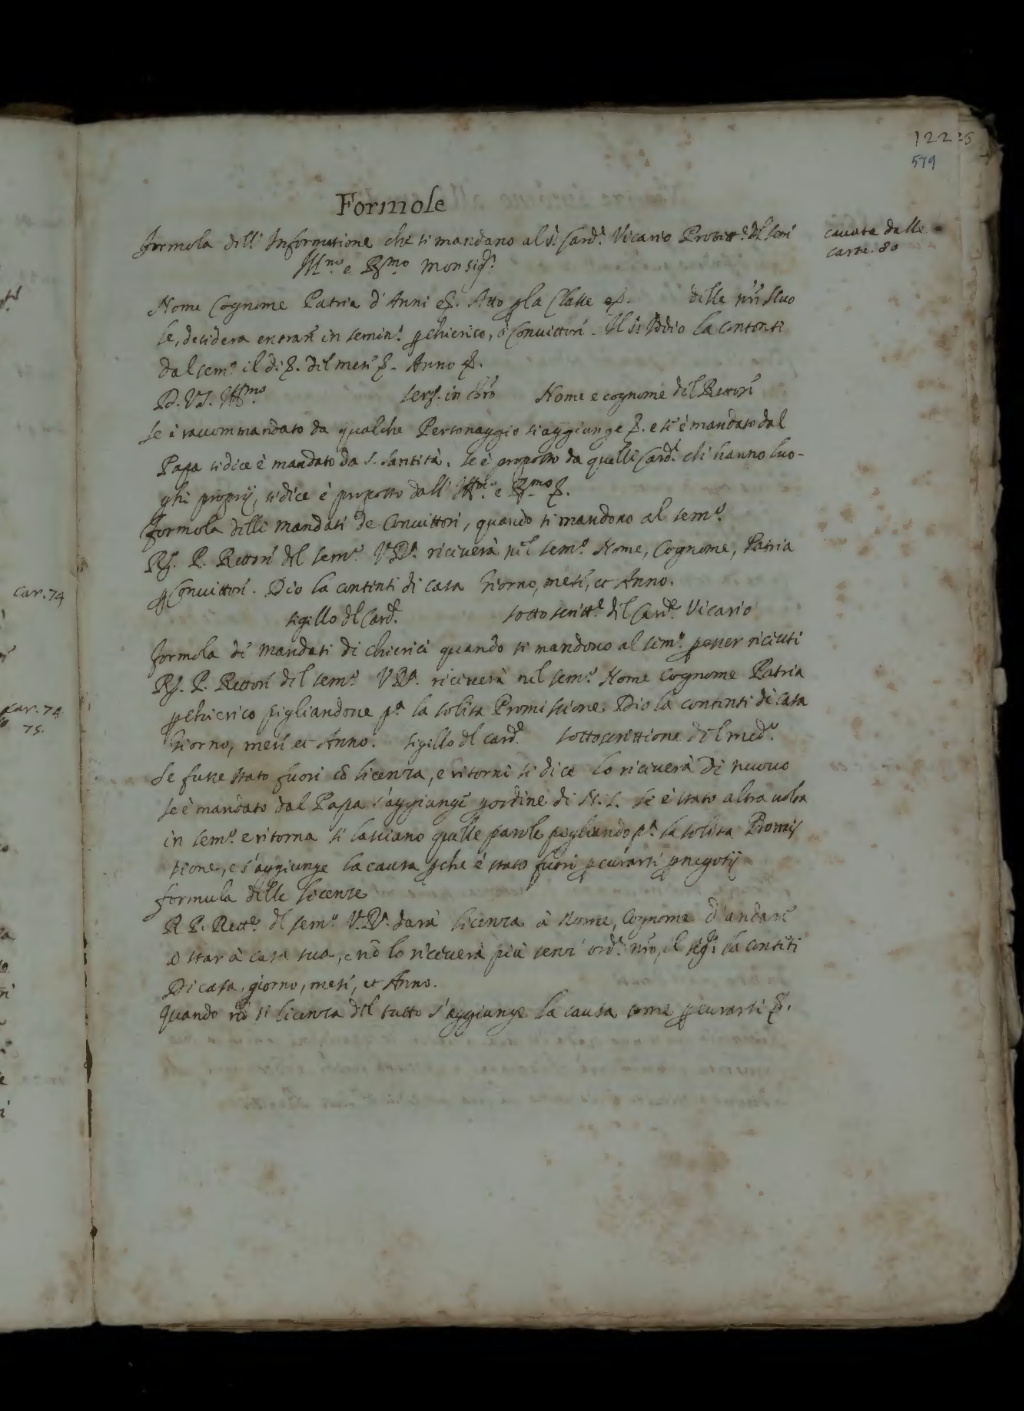 122 25
519
Formole
formola dell' Informatione che si mandano al S. Card. Vicario Protett.e del Sem
cavate dalle
carte. 80
Ill.mo e R.mo Monsig.r
Nome Cognome Patria d'Anni &. Atto p la Classe &. delle nr̃e Scuo
le, desidera entrare in semin.o p chierico, ò Convittore. Il S. Iddio la contenti
dal sem.o il di &. del mese &. Anno &.
D. V.S. Ill.mo serv. in Chr̃o Nome e cognome del Rettore
se è raccommandato da qualche Personaggio si aggiunge &. e si è mandato dal
Papa si dice è mandato da S. Santità. se è proposto da quelli Card. che hanno luo-
ghi proprij, si dice è proposto dall' Ill.mo e R.mo &.
formola delli mandati de Convittori, quando si mandono al sem.o
R. P. Rettore del sem.o V.R. riceverà nel sem.o Nome, Cognome, Patria
p Convittore. Dio la contenti di casa Giorno, mese, et Anno.
sigillo del Card. sottoscritt.e del Card. Vicario
formola de mandati di chierici quando si mandono al sem.o p esser riceuti
R. P. Rettore del sem.o V.R. riceverà nel sem.o Nome Cognome Patria
p chierico pigliandone p.a la solita Promissione. Dio la contenti di casa
Giorno, mese et Anno. sigillo del card. sottoscrittione del med.o
Se fusse stato fuori cõ licenza, e ritorni si dice lo riceverà di nuovo
se è mandato dal Papa s'aggiunge p ordine di N. S. se è stato altra volta
in sem.o e ritorna si lasciano quelle parole pigliando p.a la solita Promis
sione, e s'aggiunge la causa p che è stato fuori p curarsi p negotij
formula delle licenze
R. P. Rett.e del sem.o V.R. darà licenza à Nome, Cognome d'andare
ò star à casa sua, e nõ lo riceverà più senz' ord. nr̃o, il Sig.r la contēti
Di casa, giorno, mese, et Anno.
Quando nõ si licenza del tutto s'aggiunge la causa come p curarsi &.
car. 74
car. 74
75.